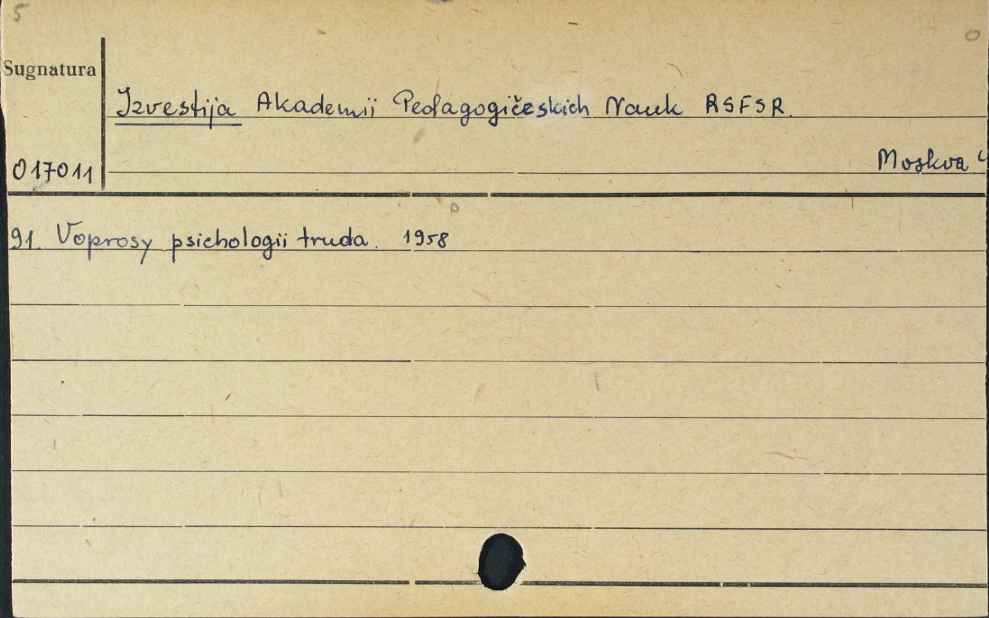 5
Sugnatura
Izvestija Akademii Pedagogičeskich Nauk RSFSR.
017011
Moskva
91. Voprosy psichologii truda. 1958